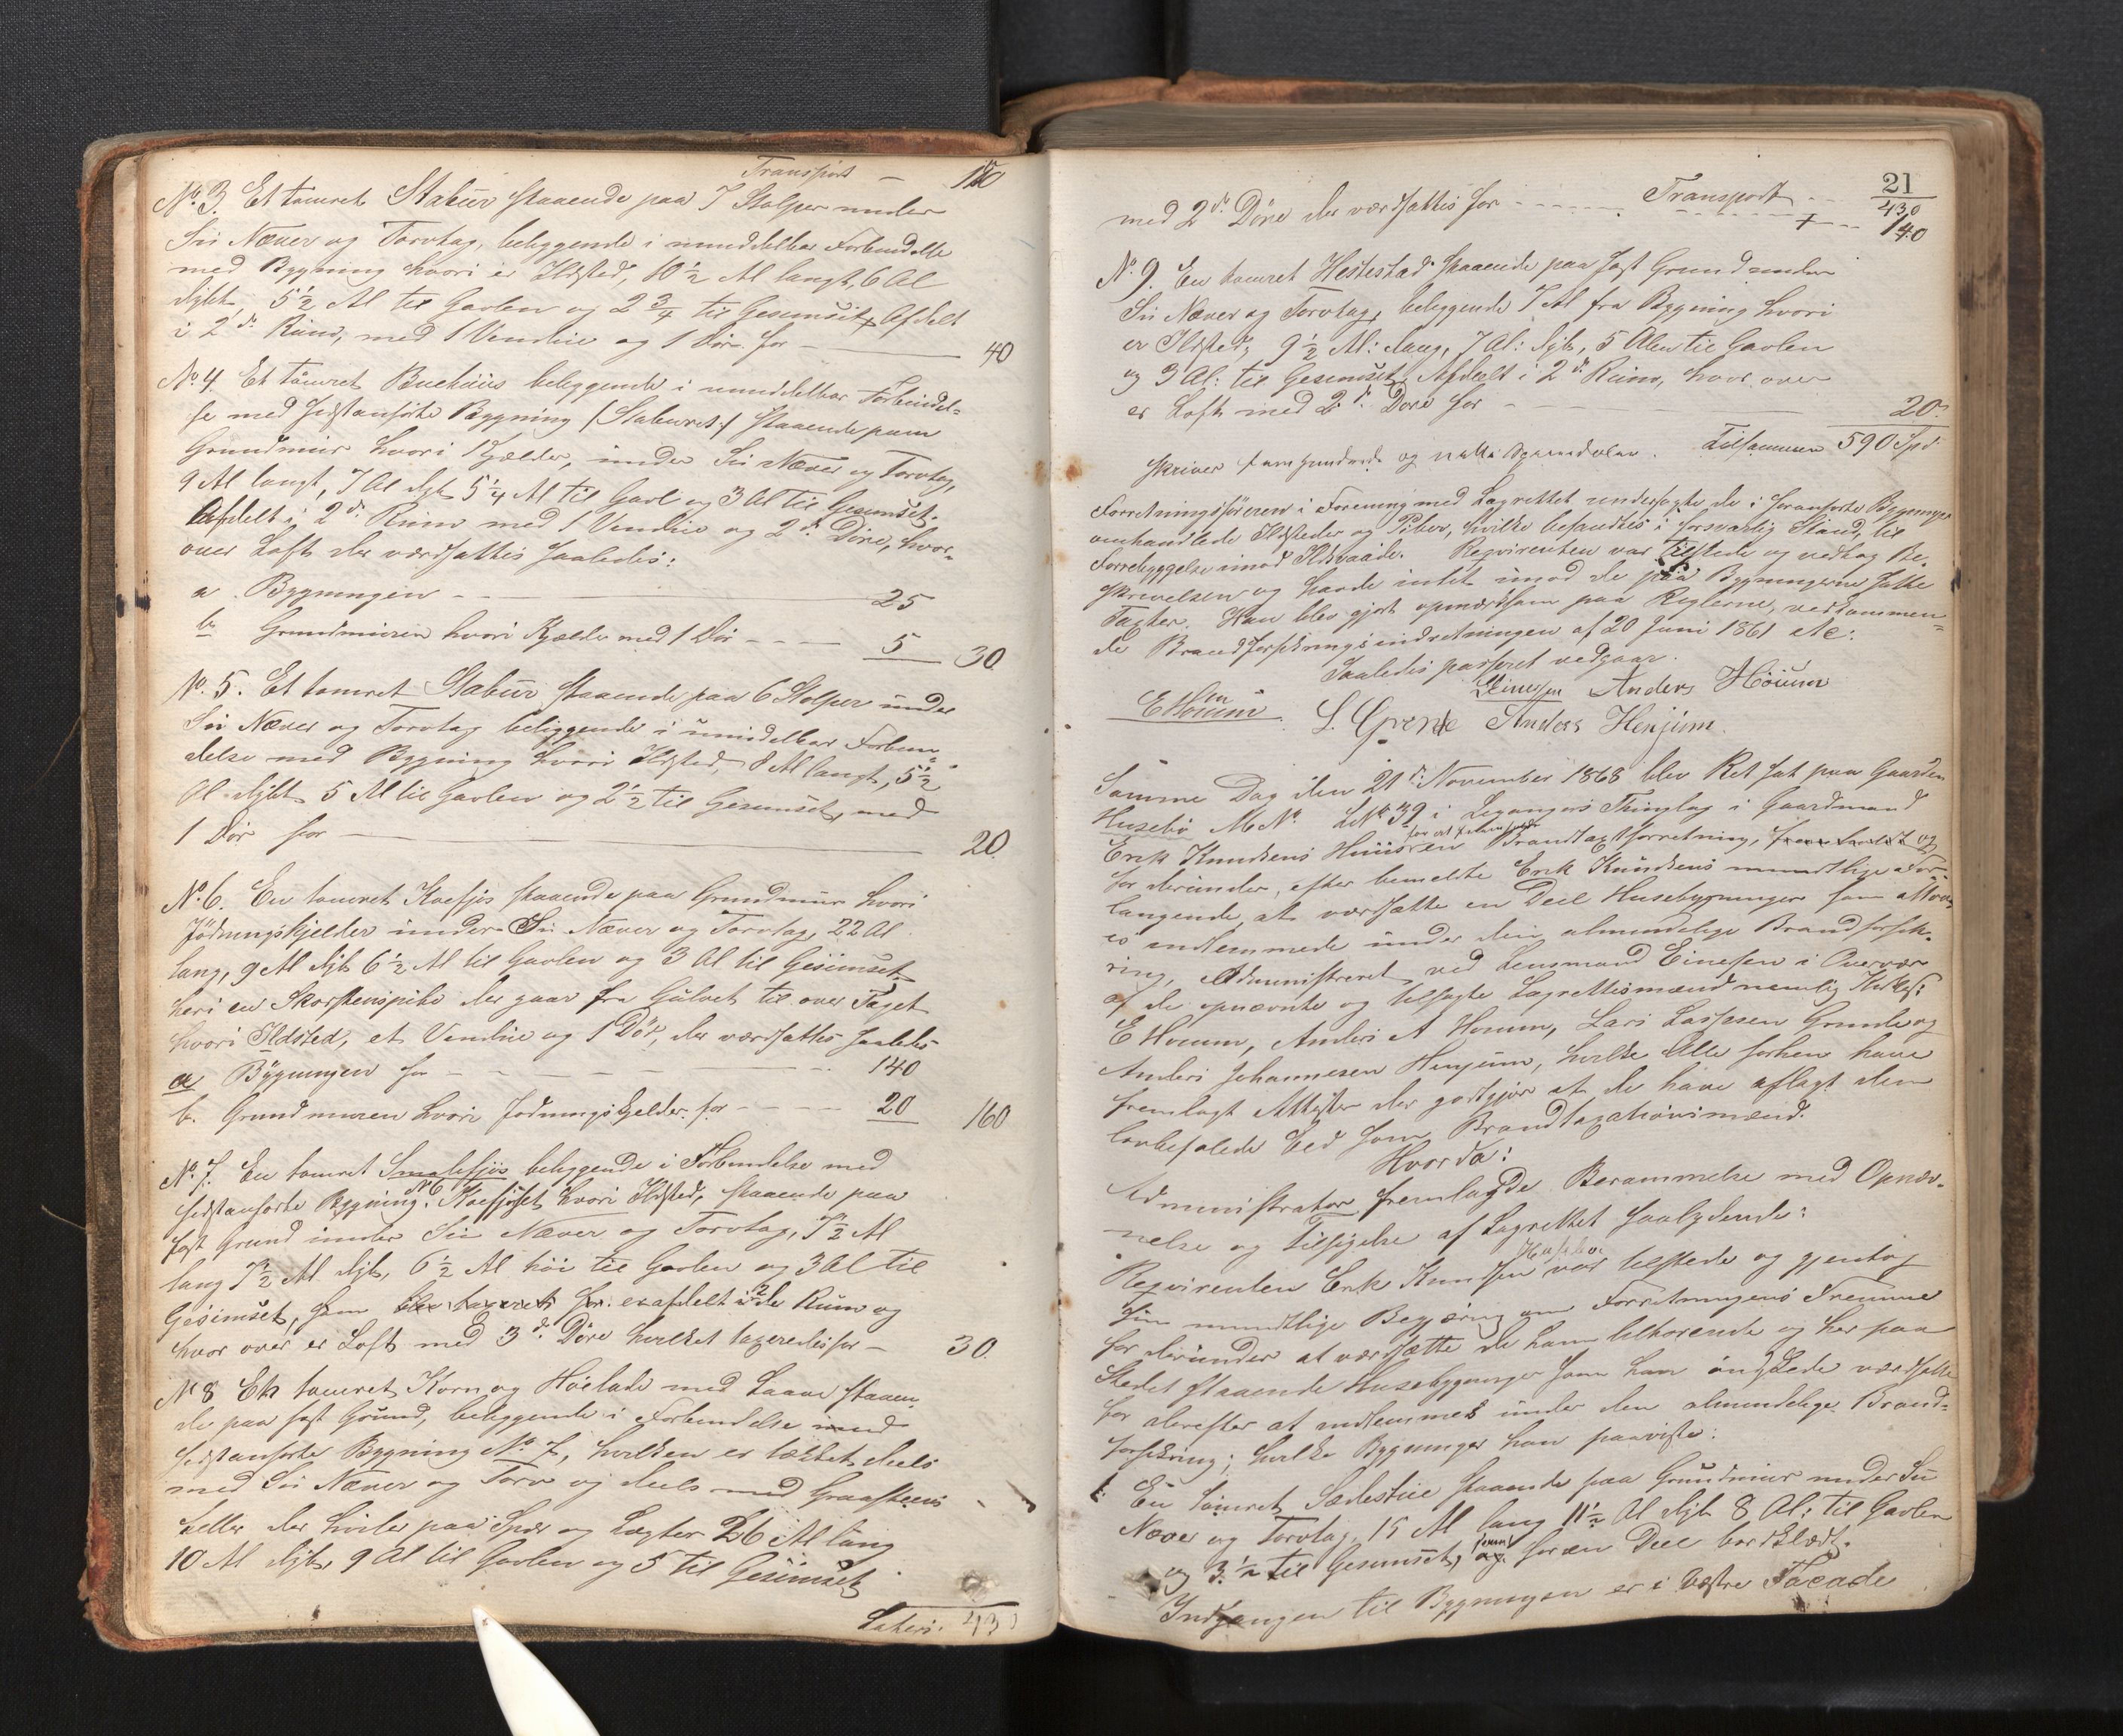 Transport - 150
No. 3. Et tømret Stabuur staaende paa 7 Stolper under
Sù Næver og Torvtag, beliggende i umiddelbar Forbindelse
med Bygning hvori er Ildsted, 10 1/2 Al langt, 6 Al
dybt, 5 1/2 Al til Gavlen og 2 3/4 til Gesimset, Afdelt
i 2de Rum, med 1 Vindue og 1 Dør for - 40
No. 4. Et tømret Buehuus beliggende i umiddelbar Forbindel-
se med sidstanførte Bygning /:Staburet:/ staaende paa
Grundmuur hvori 1 Kjælder, under Sù Næver og Torvtag,
9 Al langt, 7 Al dyb 5 1/4 Al til Gavl og 3 Al til Gesimset.
Afdelt i 2de Rum med 1 Vindue og 2de Døre, hvor-
over Loft der værdsattes saaledes:
a. Bygningen - - 25
b. Grundmuren hvori Kjælder med 1 Dør - - - 5 30
No. 5. Et tømret Stabuur staaende paa 6 Stolper under
Sù Næver og Torvtag beliggende i umidelbar Forbin-
delse med Bygning hvori Ildsted, 8 Al langt, 5 1/2
Al dybt 5 Al til Gavlen og 2 1/2 til Gesimset, med
1 Dør for - 20
No. 6. En tømret Koefjøs staaende paa Grundmuur hvori
Jødningskjelder under Sù Næver og Torvtag, 22 Al
lang, 9 Al dyb 6 1/2 Al til Gavlen og 3 Al til Gesimset
heri en Skorstenspibe der gaar fra Gulvet til over Taget
hvori Ildsted, et Vindue og 1 Dør, der værdsattes saaledes
a Bygningen for - - - - - 140
b. Grundmuren hvori Jødningskjelder for - - - - 20 160
No. 7. En tømret Smalefjøs beliggende i Forbindelse med
sidstanførte Bygning No 6 Koefjøset hvori Ildsted, staaende paa
fast Grund under Sù Næver og Torvtag, 7 1/2 Al
lang 7 1/2 Al dyb, 6 1/2 Al høi til Gavlen og 3 Al til
Gesimset, som blev taxeret for. er afdelt i 2de Rum og
hvor over er Loft med 3de Døre hvilket taxeredes for - 30.
N 8 En tømret Korn og Høelade med Laave staaen-
de paa fast Grund, beliggende i Forbindelse med
sidstanførte Bygning No 7, hvilken er tækket deels
med Sù Næver og Torv og deels med Graasteens
heller der hviler paa Spær og Lægter 26 Al lang
10 Al dyb, 9 Al til Gavlen og 5 til Gesimset
Lateris. 430
21
Transport - - - 430
med 2de Døre der værdsattes for - - - - - - - - 140
No. 9. En tømret Hestestad staaende paa fast Grund under
Sù Næver og Torvtag, beliggende 7 Al fra Bygning hvori
er Ildsted, 9 1/2 Al: lang, 7 Al: dyb, 5 Alen til Gavlen
og 3 Al: til Gesimset. Afdeelt i 2de Rum, hvor over
er Loft med 2de Døre for - 20.
skriver femhundrede og nitti Speciedaler. Tilsammen 590 Spd
Forretningsføreren i Forening med Lagrettet undersøgte de i foranførte Bygninger
omhandlede Ildsteder og Piber, hvilke befandtes i forsvarlig Stand, til
Forrebyggelse imod Ildsvaade. Reqvirenten var tilstede og vedtog Be-
skrivelsen og havde intet imod de paa Bygningerne satte
Taxter. Han blev gjort opmærksom paa Reglerne, vedkommen-
de Brandforsikringsindretningen af 20 Juni 1861 etc:
Saaledes passeret vedgaar.
Einersen Anders Hòuum
E Houum L. Grende Anders Henjum.
Samme Dag den 21de November 1868 blev Ret sat paa Gaarden
Husebø M No. LNo 39 i Leganger Thinglag i Gaardmand
Erik Knudsens Huus for at foretage en Brandtaxtforretning, og
for derunder, efter bemeldte Erik Knudsens mundtlige For-
langende, at værdsætte en Deel Husebygninger som attraa-
es indlemmede under den almindelige Brandforsik-
ring, Administreret ved Lensmand Einersen i Overvær
af de opnævnte og tilsagte Lagrettesmænd nemlig Kirkes:
E Houum, Anders A Houum, Lars Lassesen Grende og
Anders Johannesen Henjum, hvilke Alle forhen have
fremlagt Attester der godtgjør at de have aflagt den
lovbefalede Eed som Brandtaxationsmænd.
Hvorda:
Administrator fremlagde Berammelse med Opnæv-
nelse og Tilsigelse af Lagrettet saalydende:
Reqvirenten Erik Knudsen Husebø var tilstede og gjentog
sin mundtlige Begjæring om Forretningens Fremme
for derunder at værdsætte de ham tilhørende og her paa
Stedet staaende Husebygninger som han ønskede værdsatte
for derefter at indlemmes under den almindelige Brand-
forsikring; hvilke Bygninger han paaviste:
1: En tømret Sædestue staaende paa Grundmuur under Sù
Næver og Torvtag, 15 Al lang 11 1/2 Al dyb 8 Al: til Gavlen
og 3 1/2 til Gesimset, for en Deel bordklædt.
Indgangen til Bygningen er i Væstre Facade